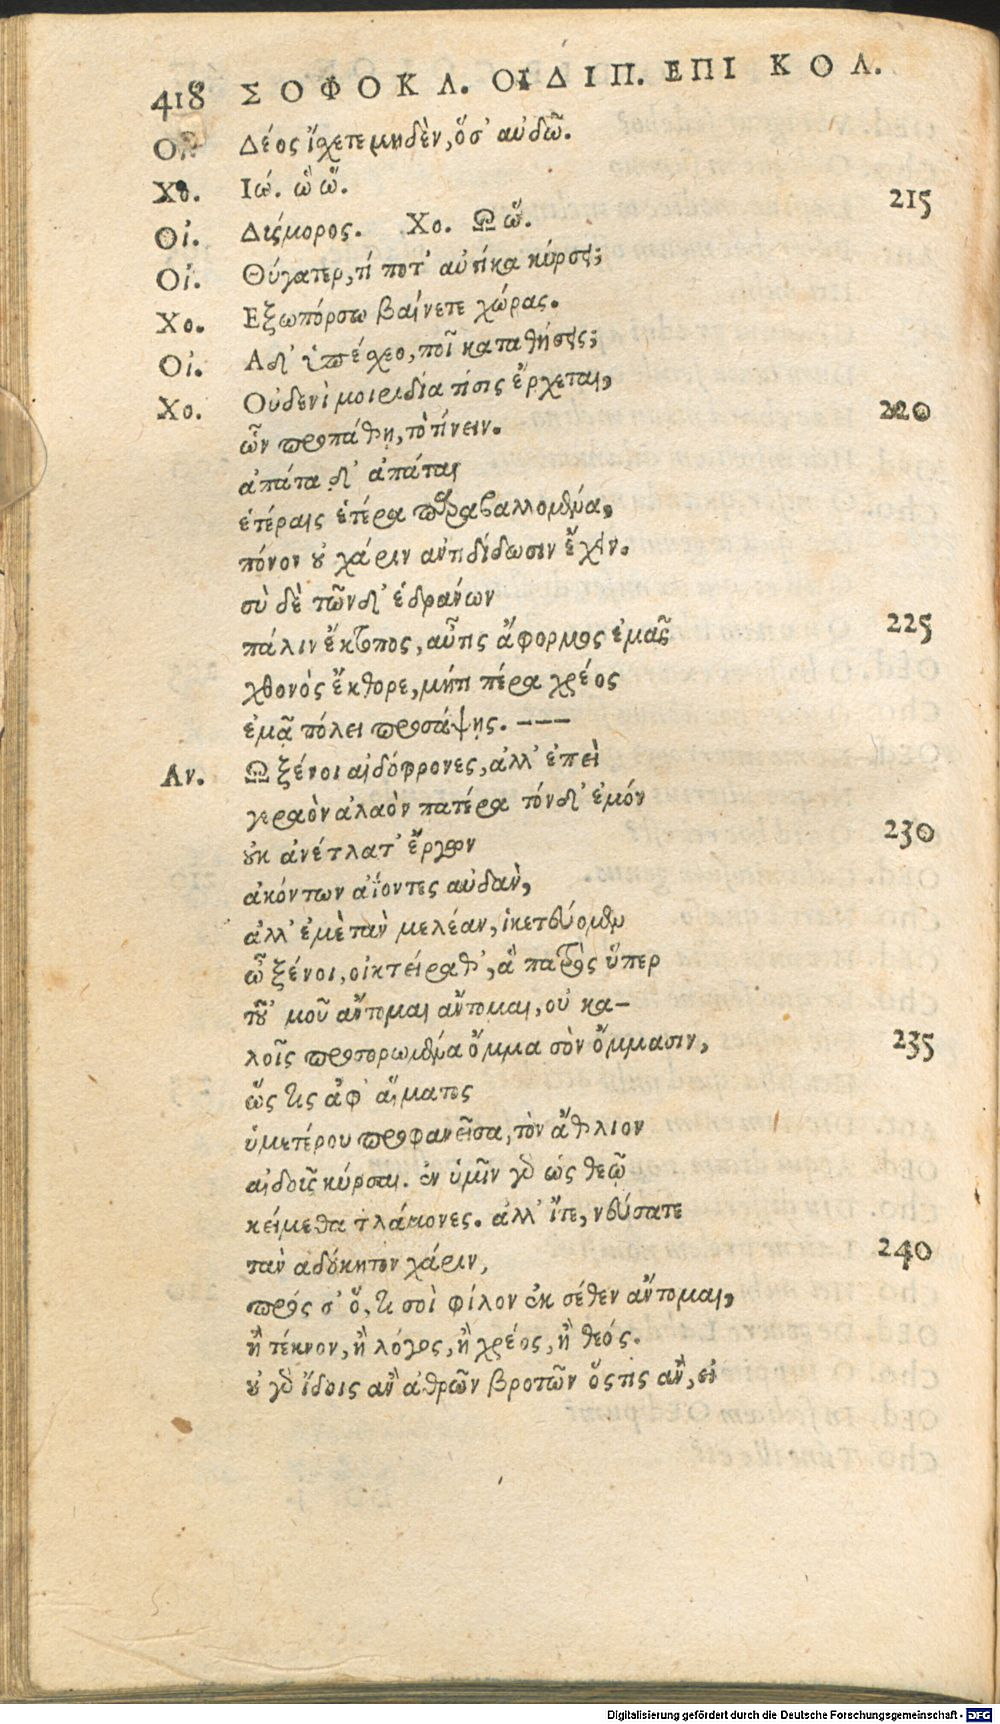 418 ΣΟΦΟΚΛ. ΟΙΔΙΠ. ΕΠΙ ΚΟΛ.
Οἰ. Δέος ἴσχετε μηδὲν, ὅσ' αὐδῶ.
Χο. Ιώ. ὢ ὤ.
Οἰ. Δύσμορος. Χο. Ω ὤ. 215
Οἰ. Θύγατερ, τί ποτ' αὐτίκα κύρσει;
Χο. Εξω πόρσω βαίνετε χώρας.
Οἰ. Α δ' ὑπέσχεο, ποῖ καταθήσεις;
Χο. Οὐδενὶ μοιριδία τίσις ἔρχεται,
ὧν προπάθῃ, τὸ τίνειν. 220
ἀπάτα δ' ἀπάταις
ἑτέραις ἑτέρα παραβαλλομένα,
πόνον οὐ χάριν ἀντιδίδωσιν ἔχειν.
σὺ δὲ τῶνδ' ἑδράνων
πάλιν ἔκτοπος, αὖτις ἄφορμος ἐμᾶς 225
χθονὸς ἔκθορε, μήτι πέρα χρέος
ἐμᾷ πόλει προσάψῃς. ---
Αν. Ω ξένοι αἰδόφρονες, ἀλλ' ἐπεὶ
γεραὸν ἀλαὸν πατέρα τόνδ' ἐμόν
οὐκ ἀνέτλατ' ἔργων 230
ἀκόντων ἀΐοντες αὐδὰν,
ἀλλ' ἐμὲ τὰν μελέαν, ἱκετεύομεν
ὦ ξένοι, οἰκτείραθ', ἃ πατρὸς ὕπερ
τοῦ 'μοῦ ἄντομαι ἄντομαι, οὐ κα-
λοῖς προσορωμένα ὄμμα σὸν ὄμμασιν, 235
ὥς τις ἀφ' αἵματος
ὑμετέρου προφανεῖσα, τὸν ἄθλιον
αἰδοῦς κύρσαι. ἐν ὑμῖν γὰρ ὡς θεῷ
κείμεθα τλάμονες. ἀλλ' ἴτε, νεύσατε
τὰν ἀδόκητον χάριν, 240
πρός σ' ὅ, τι σοὶ φίλον ἐκ σέθεν ἄντομαι,
ἢ τέκνον, ἢ λόγος, ἢ χρέος, ἢ θεός.
οὐ γὰρ ἴδοις ἂν ἀθρῶν βροτῶν ὅστις ἂν, εἰ
Digitalisierung gefördert durch die Deutsche Forschungsgemeinschaft - DFG